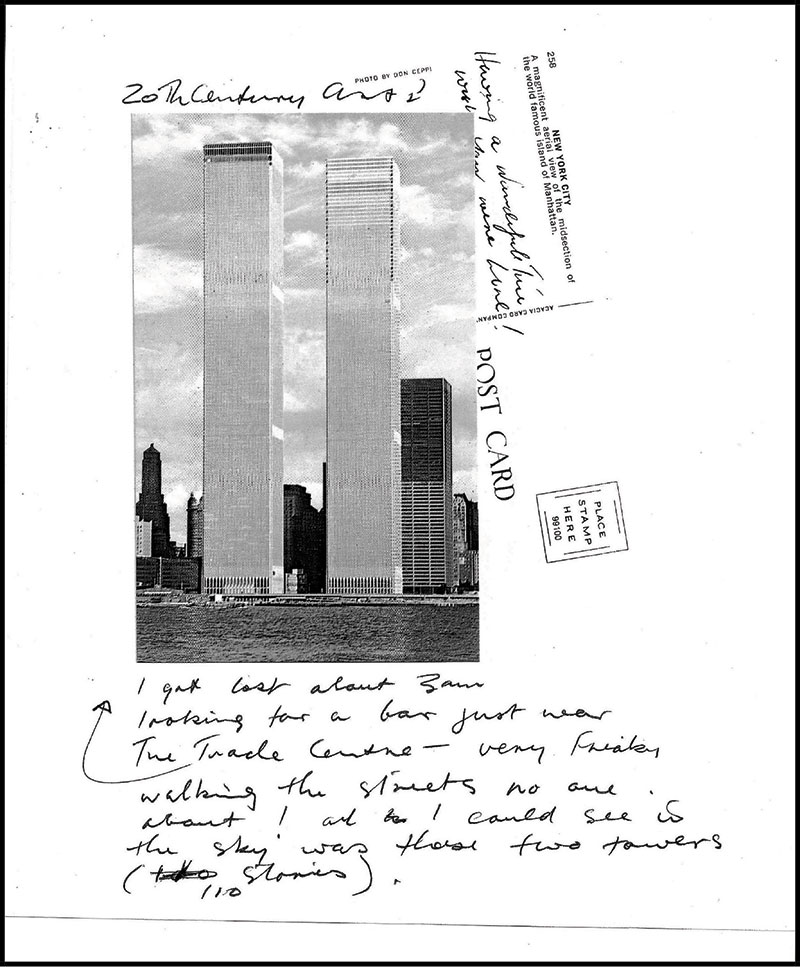 PHOTO BY DON CEPPI
20th Century Art?
Having a wonderful time
wish you were here!
258
NEW YORK CITY
A magnificent aerial view of the midsection of
the world famous island of Manhattan.
ACACIA CARD COMPANY
POST CARD
PLACE
STAMP
HERE
99100
I got lost about 3am
looking for a bar just near
The Trade Centre – very Freaky
walking the streets no one
about! all I could see in
the sky was those two towers
(110 Stories).